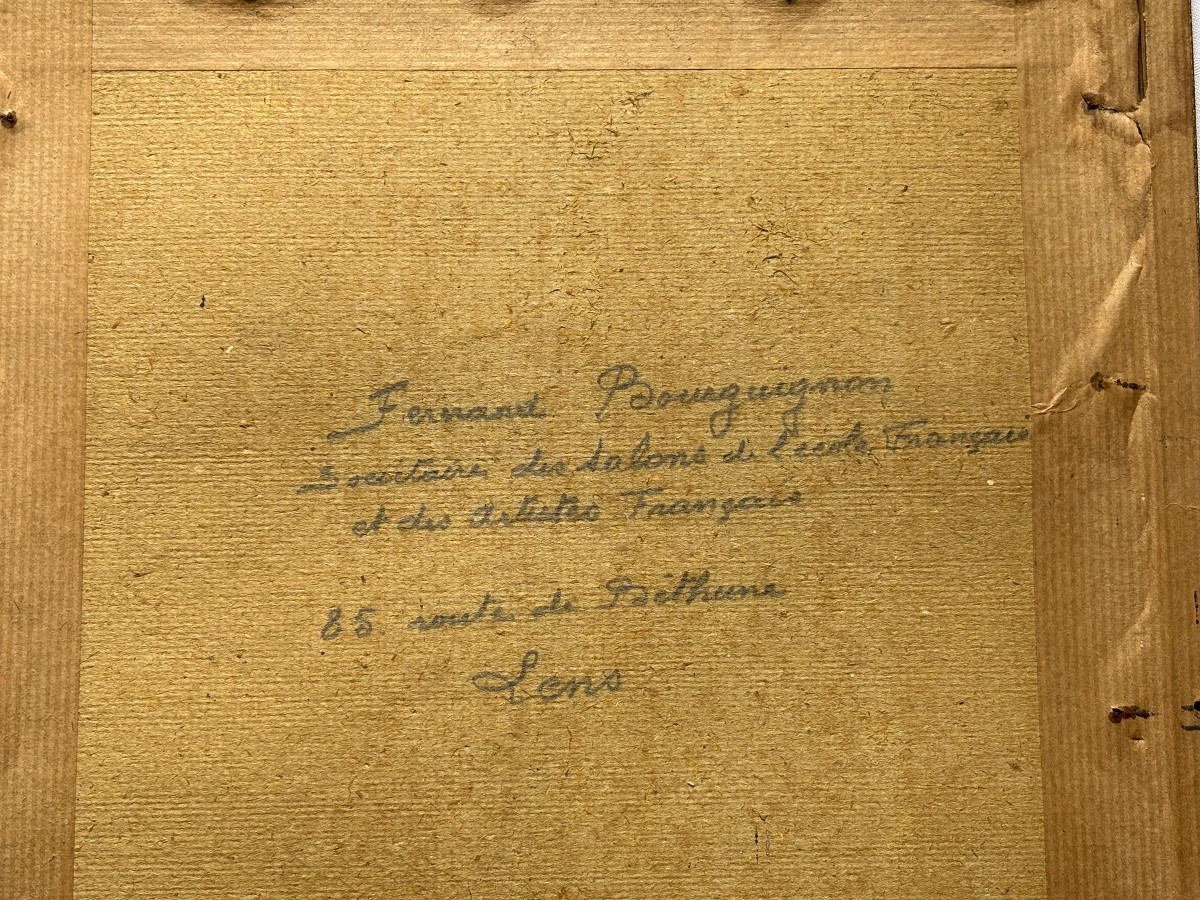 Fernand Bourguignon
Sociétaire des Salons de l'école Français
et des Artistes Français
85. route de Béthune
Lens